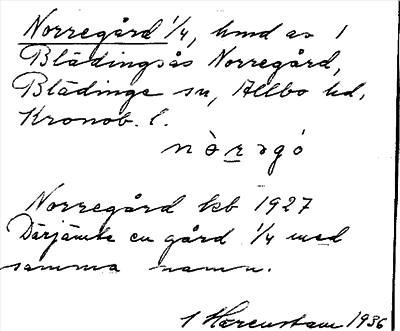 Norregård 1/4, hmd av 1
Blädingsås Norregård,
Blädinge sn, Allbo hd,
Kronob. l.
nòrəgó
Norregård kb 1927
Därjämte en gård 1/4 med
samma namn.
1936